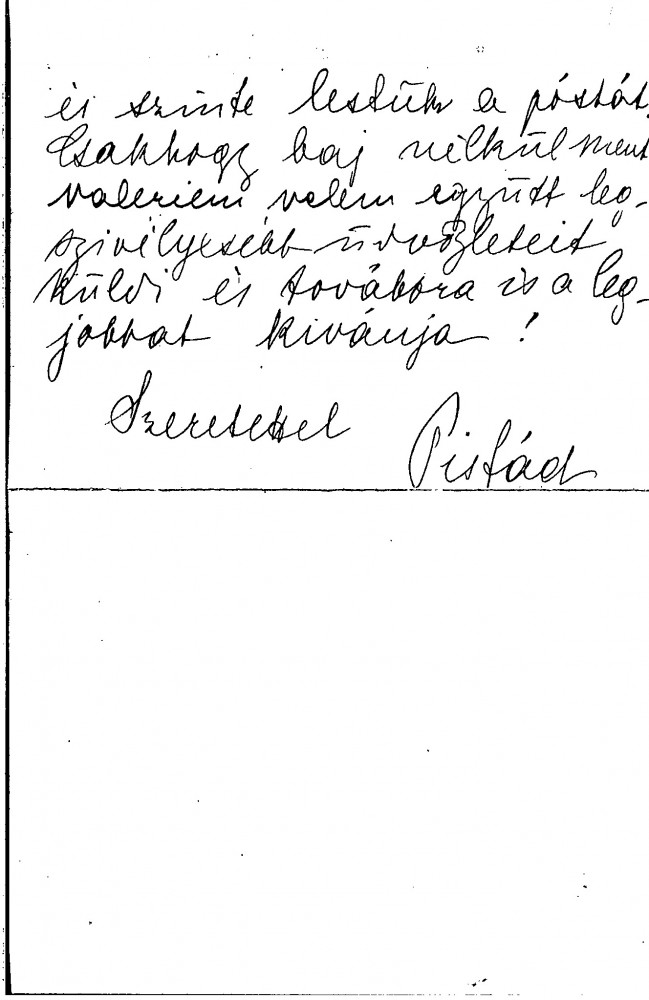 és szinte lestük a póstát.
Csakhogy baj nélkül ment
valeriem velem együtt leg-
szivélyesebb üdvözleteit
küldi és továbbra is a leg-
jobbat kivánja !
Szeretettel
Pistád